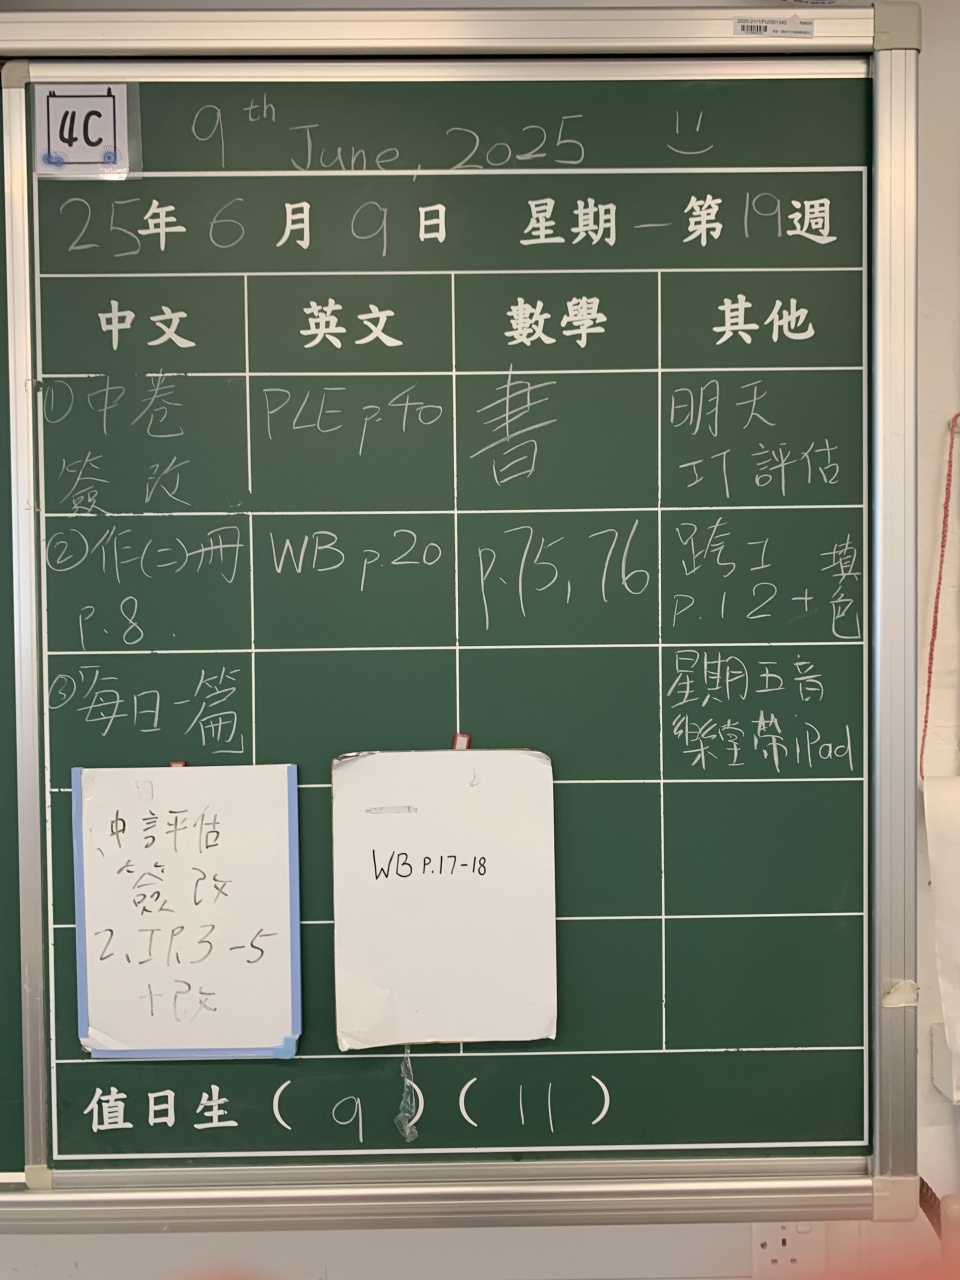 4C
9th June, 2025
25年6月9日 星期一第19週
中文 英文 數學 其他
①中卷
簽 改
PLE p.40
書
明天
IT評估
②作(二)冊
p.8.
WB p.20
p.75,76
跨工
p.12+填色
③每日一篇
星期五音
樂堂帶iPad
中言評估
簽改
2、工P.3-5
+改
WB P.17-18
值日生(9)(11)